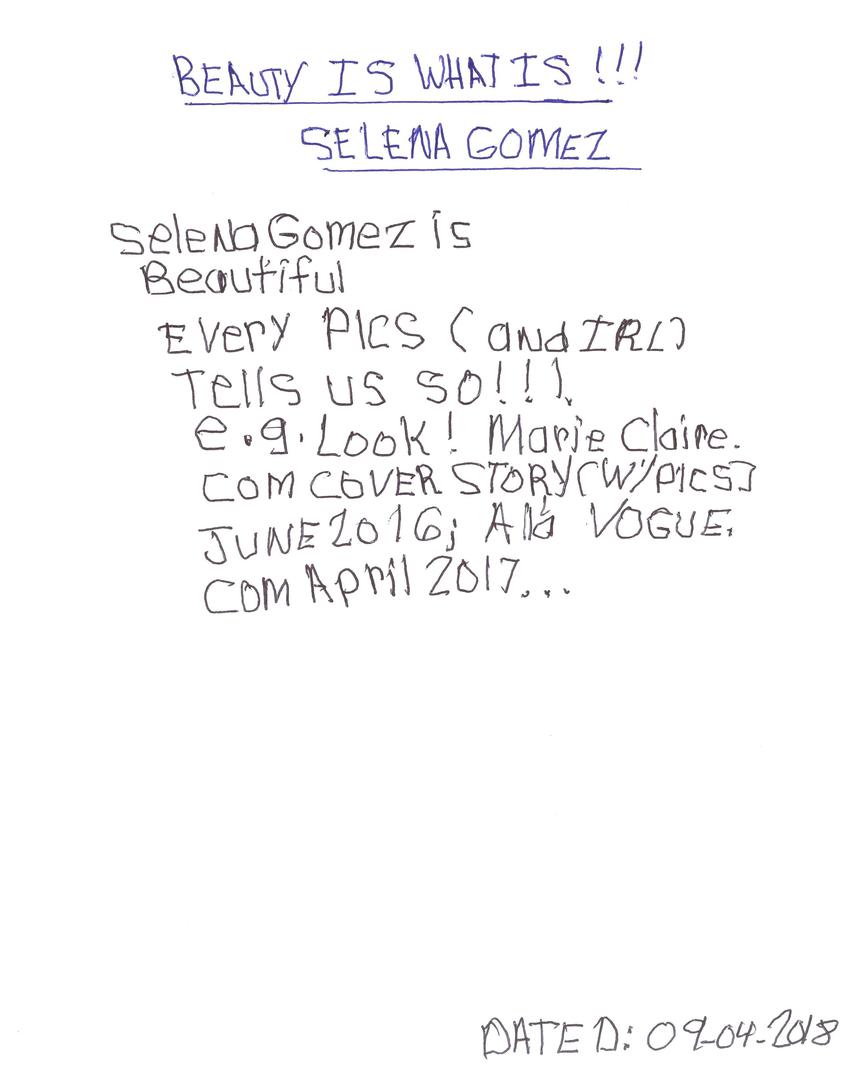 BEAUTY IS WHAT IS !!!
SELENA GOMEZ
Selena Gomez is
Beautiful
EVERY PICS (and IRL)
Tells us so!!!
e.g. Look! Marie Claire.
COM COVER STORY (W/PICS)
JUNE 2016; Alá VOGUE.
COM April 2017...
DATED: 09-04-2018